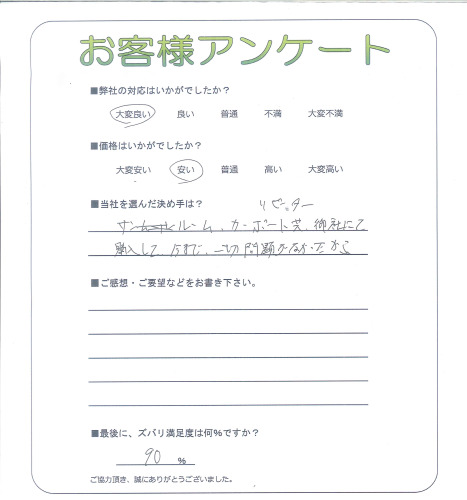 お客様アンケート
■弊社の対応はいかがでしたか？
大変良い 良い 普通 不満 大変不満
■価格はいかがでしたか？
大変安い 安い 普通 高い 大変高い
■当社を選んだ決め手は？ リピーター
サンルーム、カーポート等、御社にて
購入して、今まで、一切問題がなかったから
■ご感想・ご要望などをお書き下さい。
■最後に、ズバリ満足度は何%ですか？
90 %
ご協力頂き、誠にありがとうございました。